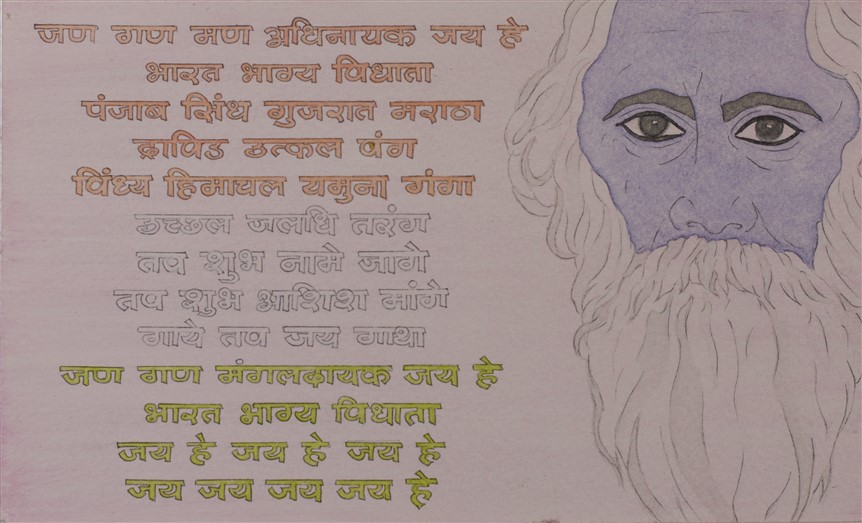 जण गण मण अधिनायक जय हे
भारत भाग्य विधाता
पंजाब सिंध गुजरात मराठा
द्राविड उत्कल बंग
विंध्य हिमाचल यमुना गंगा
उच्छल जलधि तरंग
तव शुभ नामे जागे
तव शुभ आशिश मांगे
गाये तव जय गाथा
जण गण मंगलदायक जय हे
भारत भाग्य विधाता
जय हे जय हे जय हे
जय जय जय जय हे